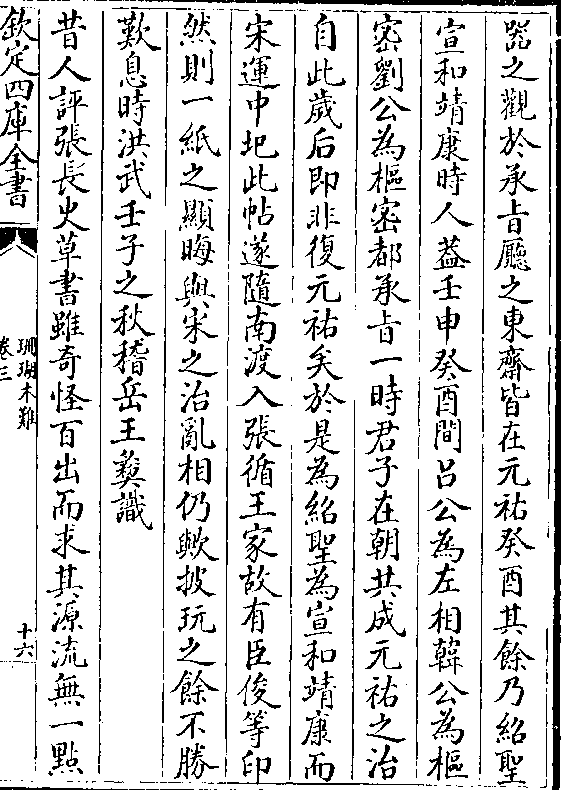 器之觀於承旨廳之東齋皆在元祐癸酉其餘乃紹聖
宣和靖康時人葢壬申癸酉間吕公為左相韓公為樞
密劉公為樞密都承旨一時君子在朝共成元祐之治
自此歲后即非復元祐矣於是為紹聖為宣和靖康而
宋運中圯此帖遂隨南渡入張循王家故有臣俊等印
然則一紙之顯晦與宋之治亂相仍歟披玩之餘不勝
歎息時洪武壬子之秋稽岳王㷆識
昔人評張長史草書雖奇怪百出而求其源流無一點
欽定四庫全書
珊瑚木難
卷三
十六